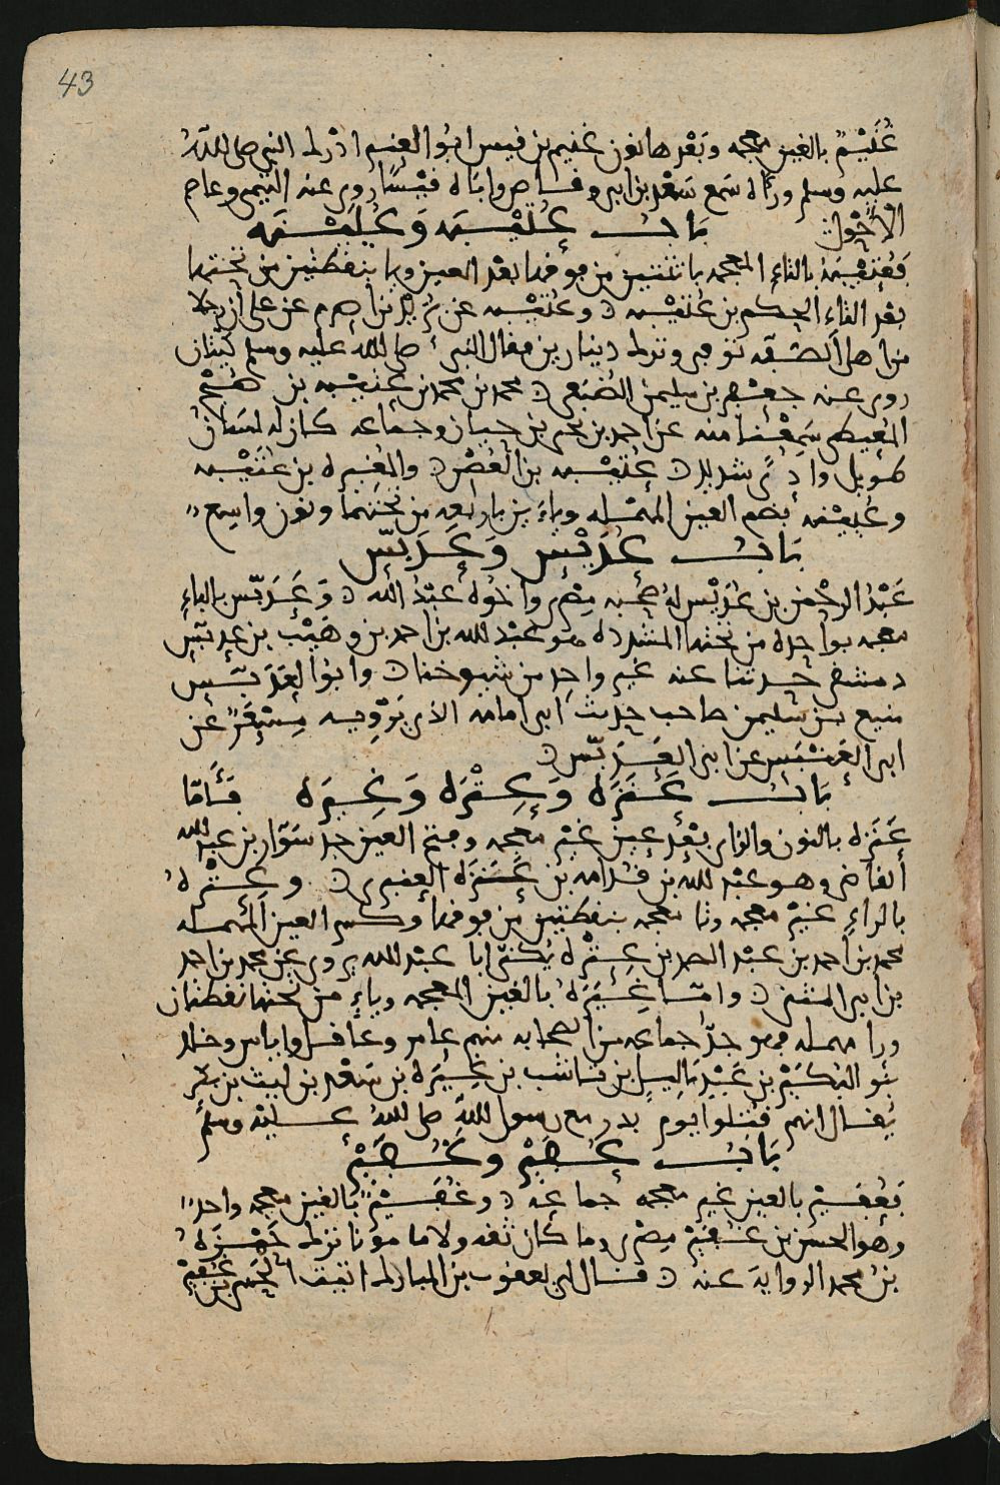 43
غُنَيْمٌ بالغين معجمه وبَعْدها نون غنيم بن قيس ابُو العنبر ادْرك النبي صلى اللهُ
عليه وسلم وراٰه سَمع سَعْد بن ابي وقاص واباه قيْسًا روى عنه التيمى وعاصم
الأَحْوَل بَابُ عُتَيْبَه وَعُيَيْنَه
فَعُتَيْبَةُ بالتاءِ المعجمه باثنتين من فوقها بعْد العين ويا بنقطتين من تحتها
بعْد التاء الحكم بن عُتَيْبه وعُتَيْبه عن بُرَيْد بن اصرم عن على ان رجلا
من اهل الصُّفّه توفى وترك دينارين فقال النبي صلى الله عليه وسلم كيّتان
روى عنه جعْفر بن سليمن الضُبَعى محمد بن محمد بن عتيْبه بن
المعيطى سَمِعْنا منه عن احمد بن بن حيان وجماعه كان له لسَان
طويل وا شديد عُتَيْبه بن والمغيره بن عُتَيْبه
وعُيَيْنه بضم العين المهمله وياءَين باربَعه من تحتهما ونون واسع
بَابُ عُدَيْس وَعَدَبّس
عَبْدُ الرحْمن بن عُدَيْس لهُ صُحبه مِصْرى واخوُه عَبْدُ الله وَعَدَبّس بالباءِ
معجمه بواحِده من تحتها المشدده هو عبْد الله بن احمد بن وهَيْب بن عدبّس
دمشقى حدثنا عنه غير واحِد من شيوخنا وابُوا لعَدَبّس
منيع بن سليمن صَاحب حديث ابى امامه الذى يَرويه مِسْعَرٌ عن
ابى العَنْبَس عن ابى العَدَبّس
بَابُ عَنَزَه وَعِتْرَه وَغِيَرَه فَأَمّا
عَنَزَه بالنون والزاى بعْد عين غيْر معجمه وفتح العين جد سَوّار بن عبد الله
القاضى وهو عبْد الله بن قدامه بن عَنَزَه العنبرى وعِتْرهُ
بالراءِ غيْر معجمه وتا معجمه بنقطتين من فوقها وكسر العين المهمله
محمد بن احمد بن عبْد بن عِتْرَه يُكنى ابا عبْد الله يروى عن محمد بن احمد
بن ابى المثنى وامّا غِيَرَهُ بالغين المعجمه وياءٍ من تحتها نقطتان
ورا مهمله فهو جدُّ جماعه من الصحابه منهم عامر وعاقل واياس وخلد
بنو البُكَيْر بن عَبْد يَالِيل بن ناشب بن غِيَرَه بن سَعْد بن ليث بن بكر
يقال انهم قتلوا يوم بدر مع رسول اللهِ صلى اللهُ عليه وسلم
بَابُ عُفَيْر وَغُفَيْر
فَعُفَيْر بالعين غير معجمه جماعه وغُفَيْرٌ بالغين معجمه واحدٌ
وهو الحسن بن غُفَيْر مِصْرى وما كان ثقه ولا مامونا ترك حَمْزَه
بن محمد الروايَة عنه قال لى يعقوب بن المبارك الحَسن بن غُفَيْر